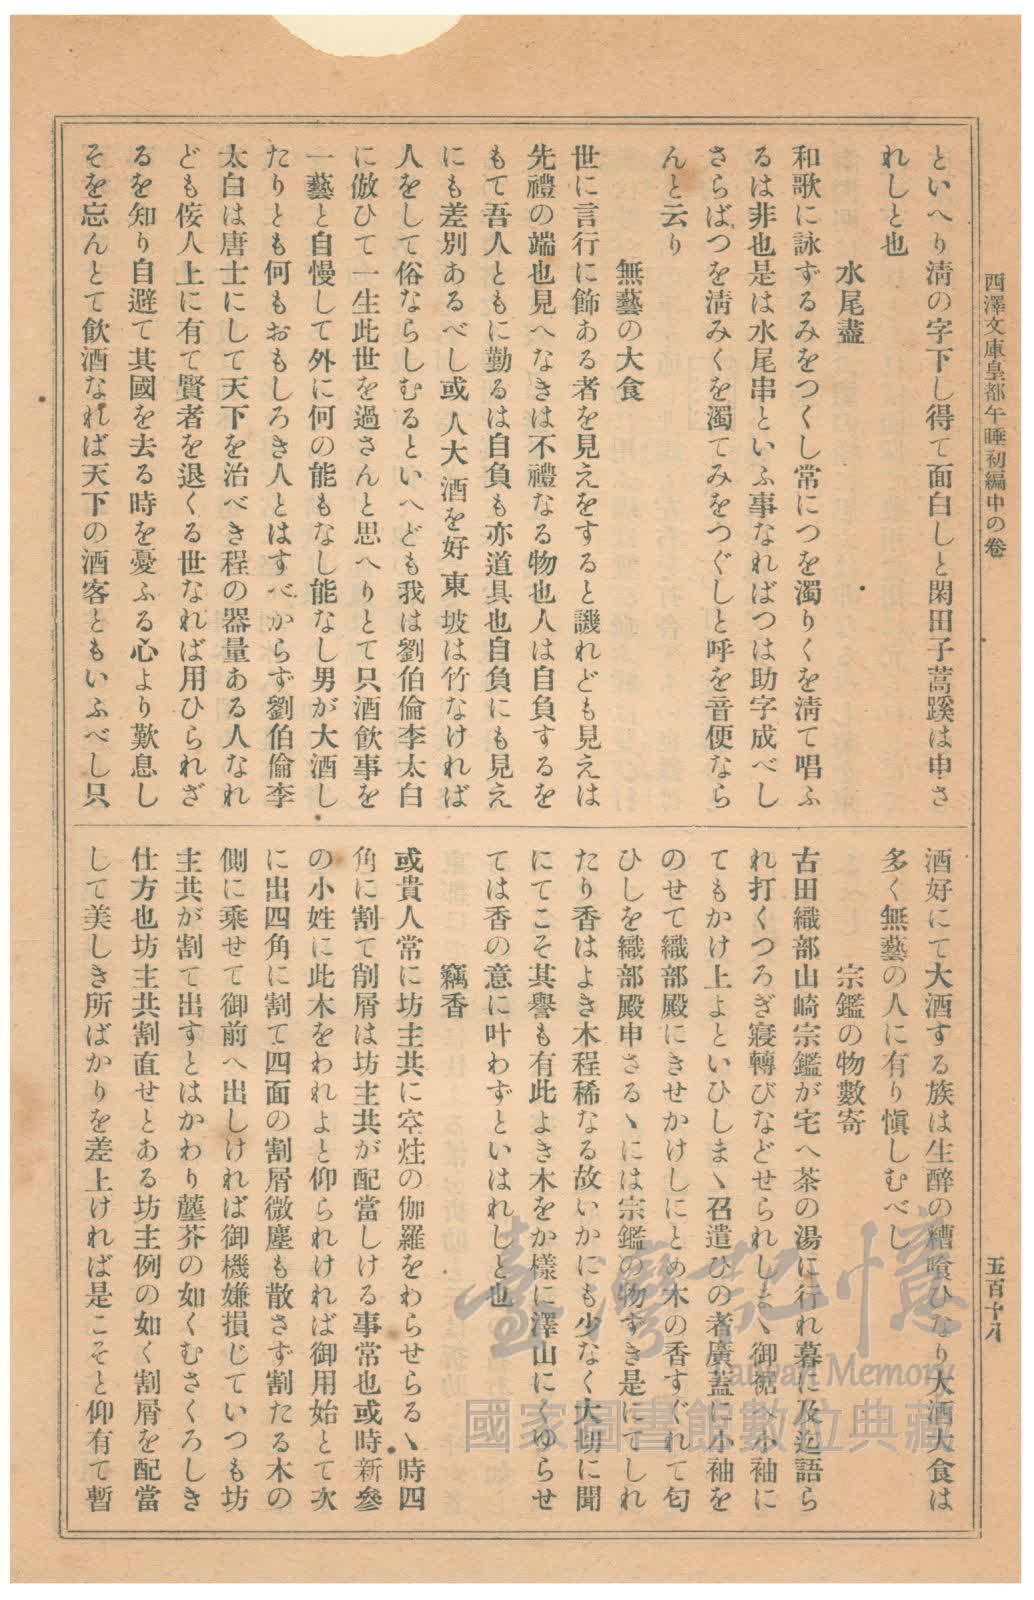 西澤文庫皇都午睡初編中の卷
五百十八
といへり淸の字下し得て面白しと閑田子蒿蹊は申さ
れしと也
水尾盡
和歌に詠ずるみをつくし常につを濁りくを淸て唱ふ
るは非也是は水尾串といふ事なればつは助字成べし
さらばつを淸みくを濁てみをつぐしと呼を音便なら
んと云り
無藝の大食
世に言行に飾ある者を見えをすると譏れども見えは
先禮の端也見へなきは不禮なる物也人は自負するを
もて吾人ともに勤るは自負も亦道具也自負にも見え
にも差別あるべし或人大酒を好東坡は竹なければ
人をして俗ならしむるといへども我は劉伯倫李太白
に倣ひて一生此世を過さんと思へりとて只酒飮事を
一藝と自慢して外に何の能もなし能なし男が大酒し
たりとも何もおもしろき人とはすべからず劉伯倫李
太白は唐士にして天下を治べき程の器量ある人なれ
ども侫人上に有て賢者を退くる世なれば用ひられざ
るを知り自避て其國を去る時を憂ふる心より歎息し
そを忘んとて飮酒なれば天下の酒客ともいふべし只
酒好にて大酒する族は生醉の糟喰ひなり大酒大食は
多く無藝の人に有り愼しむべし
宗鑑の物數寄
古田織部山崎宗鑑が宅へ茶の湯に行れ暮に及迄語ら
れ打くつろぎ寢轉びなどせられしまゝ御裾へ小袖に
てもかけ上よといひしまゝ召遣ひの者廣蓋に小袖を
のせて織部殿にきせかけしにとめ木の香すぐれて匂
ひしを織部殿申さるゝには宗鑑の物ずき是にてしれ
たり香はよき木程稀なる故いかにも少なく大切に聞
にてこそ其譽も有此よき木をか樣に澤山にくゆらせ
ては香の意に叶わずといはれしと也
竊香
或貴人常に坊主共に空炷の伽羅をわらせらるゝ時四
角に割て削屑は坊主共が配當しける事常也或時新參
の小姓に此木をわれよと仰られければ御用始とて次
に出四角に割て四面の割屑微塵も散さず割たる木の
側に乘せて御前へ出しければ御機嫌損じていつも坊
主共が割て出すとはかわり蘯芥の如くむさくろしき
仕方也坊主共割直せとある坊主例の如く割屑を配當
して美しき所ばかりを差上ければ是こそと仰有て暫
臺灣記憶
Taiwan Memory
國家圖書館數位典藏